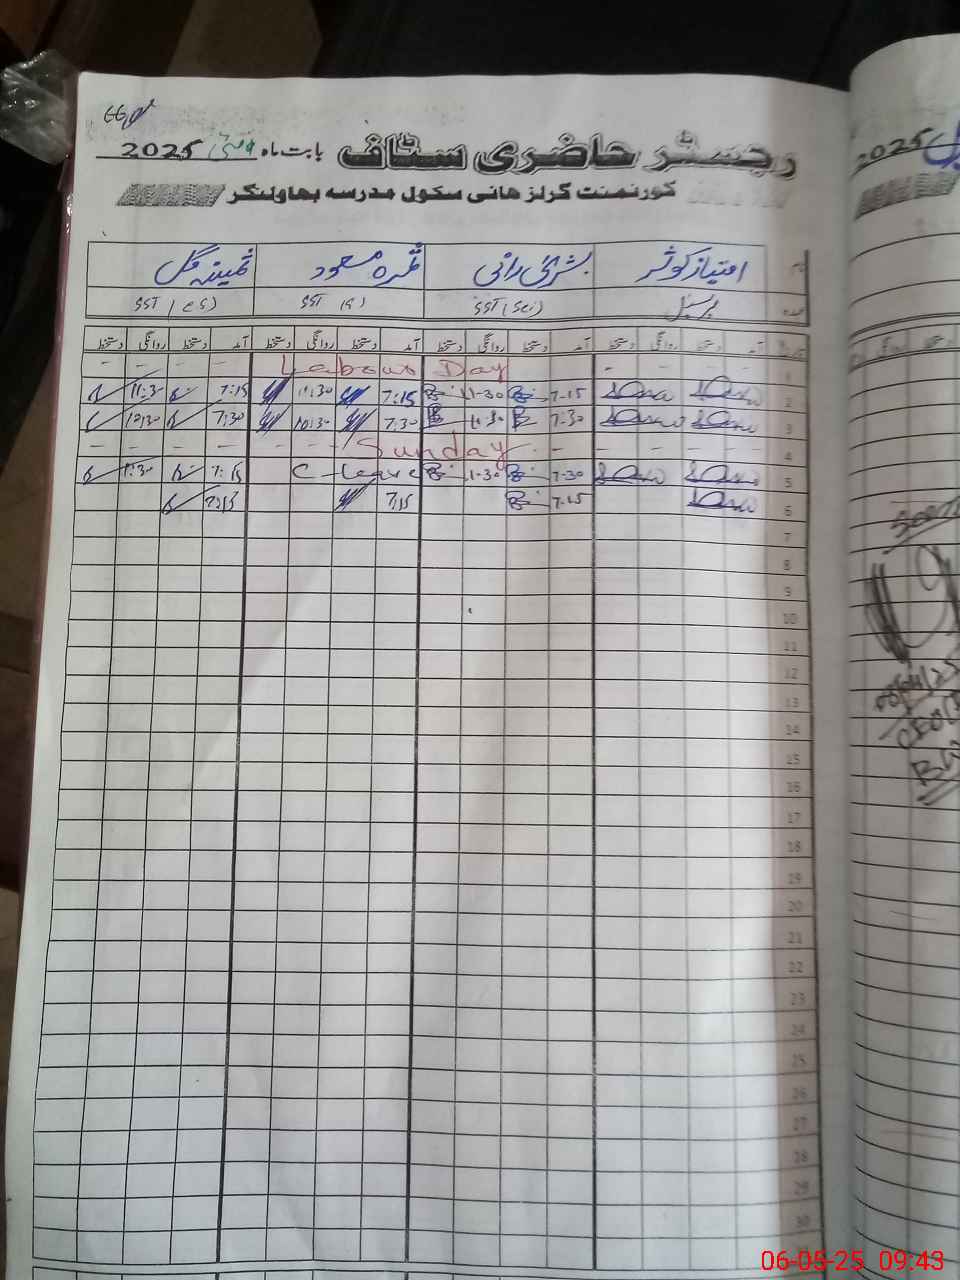 رجسٹر حاضری سٹاف بابت ماہ مئی 2025
گورنمنٹ گرلز ہائی سکول مدرسہ بہاولنگر
نام امتیاز کوثر بشریٰ رانی ثمرہ مسعود ثمینہ گل
عہدہ پرنسپل SST (Sci) SST (G) SST (CS)
آمد دستخط روانگی دستخط آمد دستخط روانگی دستخط آمد دستخط روانگی دستخط آمد دستخط روانگی دستخط
1 Labour Day
2 7.15 11-30 7:15 11:30 7:15 11:30
3 7:30 7:30 10:30 7:30 10:30
4 Sunday
5 7.30 1.30 C-leave 7:15 1:30
6 7.15 7:15 7:15
7
8
9
10
11
12
13
14
25
16
17
18
19
20
21
22
23
24
25
26
27
28
29
30
2025
CEO
06-05-25 09:43